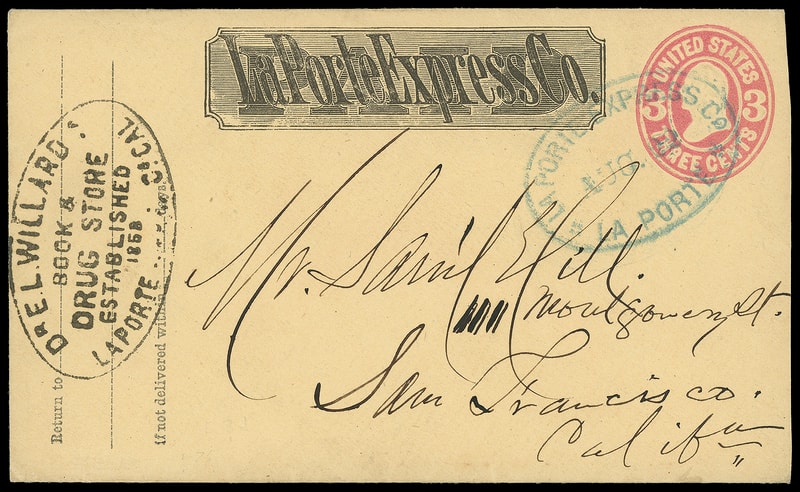 LaPorteExpressCo.
UNITED STATES
3 3
THREE CENTS
LA PORTE EXPRESS Co
AUG.
LA PORTE
Dr E.L. WILLARD'S
BOOK &
DRUG STORE
ESTABLISHED
1858
LAPORTE CAL
Return to
If not delivered within days.
Mr. Sam'l Hill.
Montgomery St.
San Francisco.
Califa